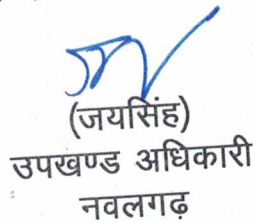 (जयसिंह)
उपखण्ड अधिकारी
नवलगढ़